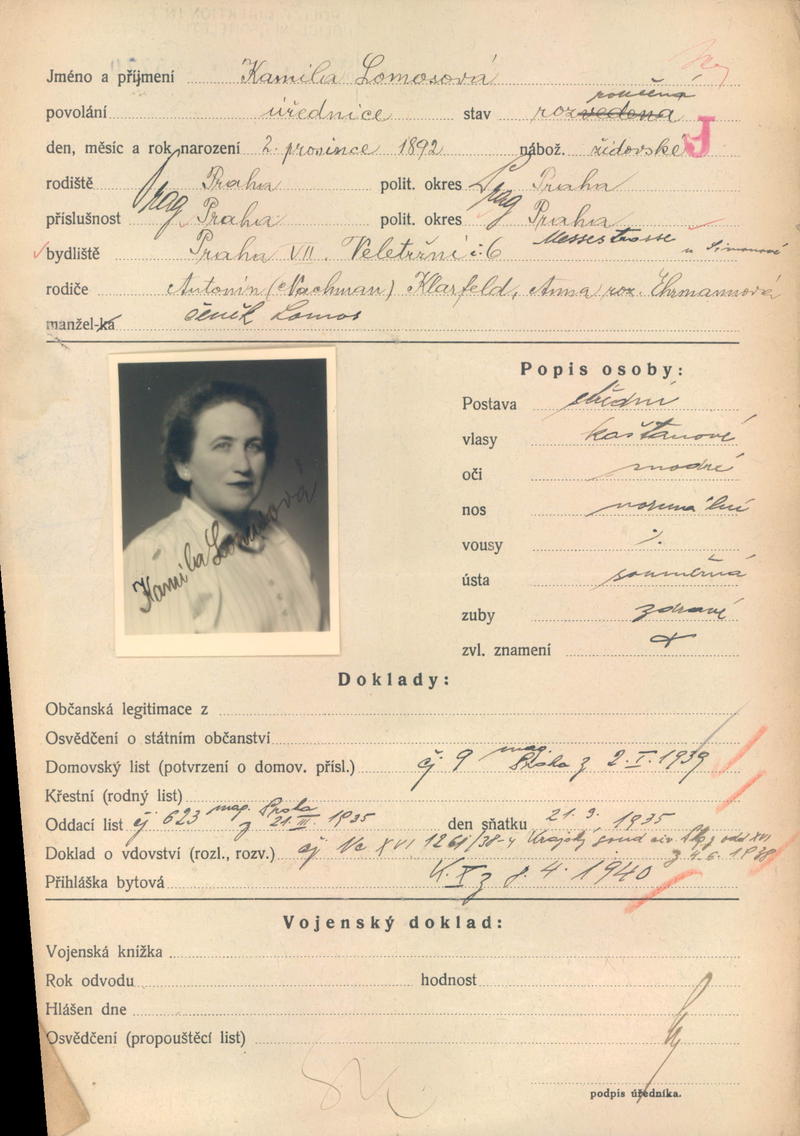 Jméno a příjmení Kamila Lomosová
povolání úřednice stav rozvedena
den, měsíc a rok narození 2. prosince 1892 nábož. židovské J
rodiště Praha polit. okres Praha
Prag Prag
příslušnost Praha polit. okres Praha
bydliště Praha VII. Veletržní č. 6 Messestrasse u Simonové
rodiče Antonín (Nachman) Klarfeld, Anna roz. Ehrmannová
manžel-ka Čeněk Lomos
Popis osoby:
Postava střední
vlasy kaštanové
oči modré
nos normální
vousy ·/.
ústa souměrná
zuby zdravé
zvl. znamení
Kamila Lomosová
Doklady:
Občanská legitimace z
Osvědčení o státním občanství
Domovský list (potvrzení o domov. přísl.) čj 9 mag. Praha z 2. I. 1939
Křestní (rodný list)
Oddací list čj 623 mag. Praha z 21. III. 1935 den sňatku 21. 3. 1935
Doklad o vdovství (rozl., rozv.) čj Nc XVI 1261/38-4 Krajský soud civ. odd XVI z 4. 6. 1938
Přihláška bytová 8. 4. 1940
Vojenský doklad:
Vojenská knížka
Rok odvodu hodnost
Hlášen dne
Osvědčení (propouštěcí list)
podpis úředníka.